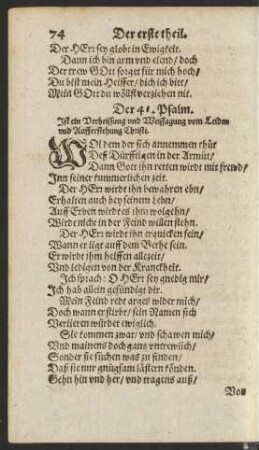 74 Der erste theil.
Der HErr sey globt in Ewigkeit.
Dann ich bin arm vnd elend/ doch
Der trew GOtt sorget für mich hoch/
Du bist mein Helffer/ dich ich bitt/
Mein GOtt du wöllst verziehen nit.
Der 41. Psalm.
Ist ein Verheissung vnd Weissagung vom Leiden
vnd Aufferstehung Christi.
WOl dem der sich annemmen thůt
Deß Dürfftigen in der Armůt/
Dann Gott ihn retten wirdt mit frewd/
Inn seiner kummerlichen zeit.
Der HErr wirdt ihn bewahren ebn/
Erhalten auch bey seinem lebn/
Auff Erden wird es ihm wolgehn/
Wirdt nicht in der Feind willen stehn.
Der HErr wirdt ihn erquicken fein/
Wann er ligt auff dem Bethe sein.
Er wirdt ihm helffen allezeit/
Vnd ledigen von der Kranckheit.
Ich sprach: O HErr sey gnedig mir/
Ich hab allein gesündigt dir.
Mein Feind redt arges wider mich/
Doch wann er stirbt/ sein Namen sich
Verlieren würdet ewiglich.
Sie kommen zwar/ vnd schawen mich/
Vnd mainens doch gantz vntrewlich/
Sonder sie sůchen was zu finden/
Daß sie nur gnůgsam lästern könden.
Gehn hin vnd her/ vnd tragens auß/
Von